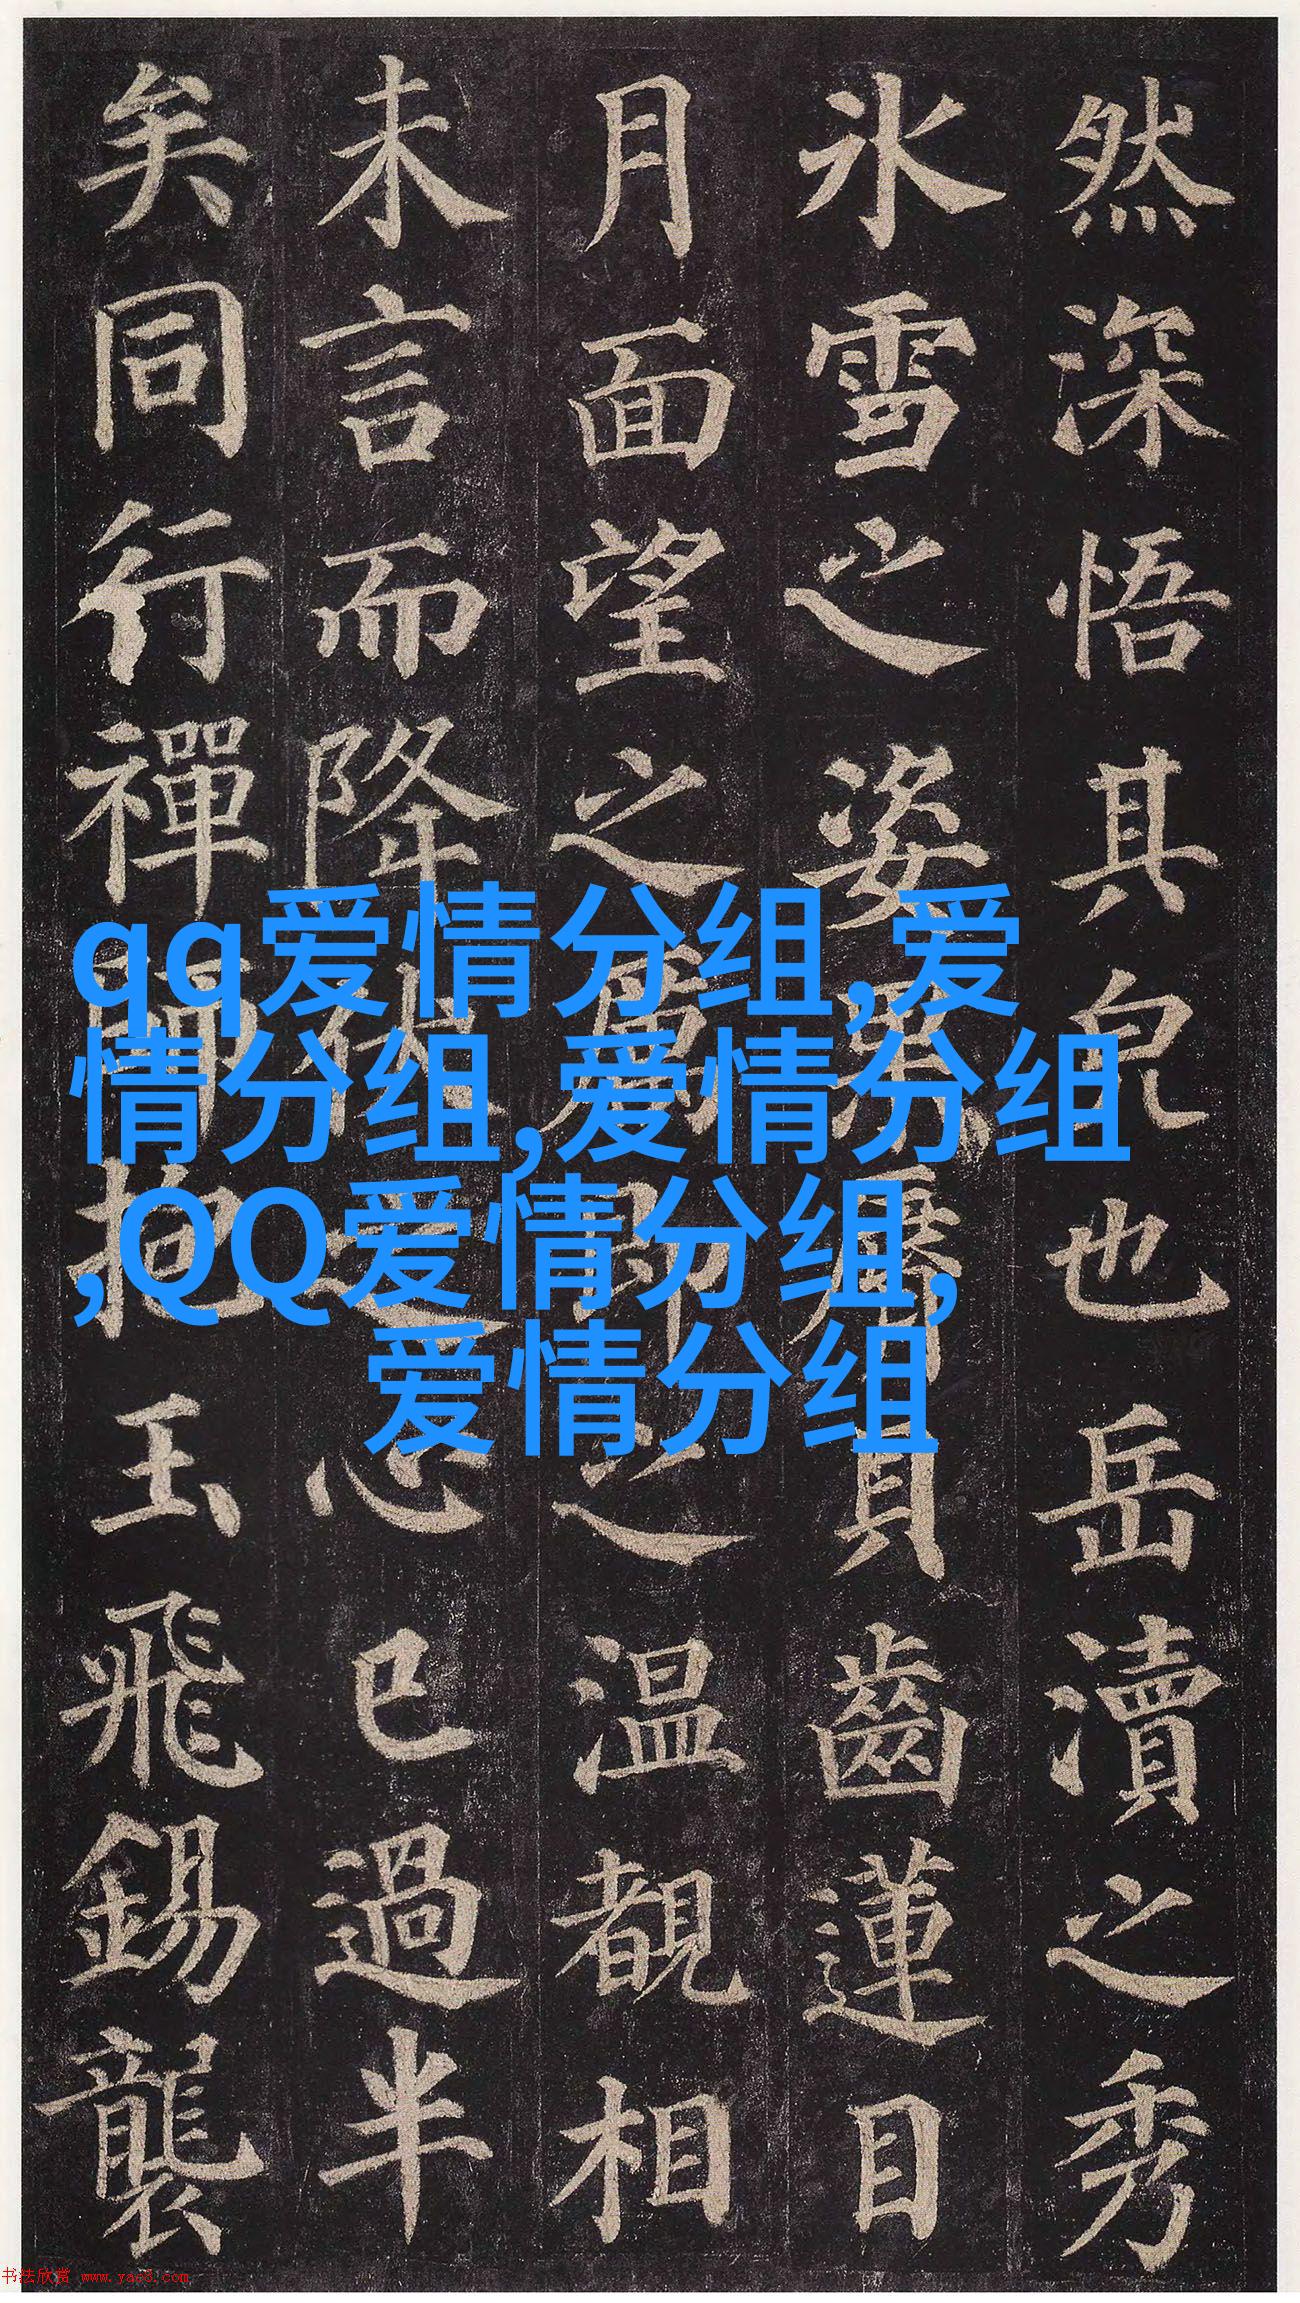 然深悟其皃也岳瀆之秀
氷雪之姿果脣貝齒蓮目
月面望之厲即之温覩相
未言而降伏之心已過半
矣同行禪師抱玉飛錫襲
qq爱情分组,爱
情分组,爱情分组
,QQ爱情分组,
爱情分组
书法欣赏 www.yac8.com